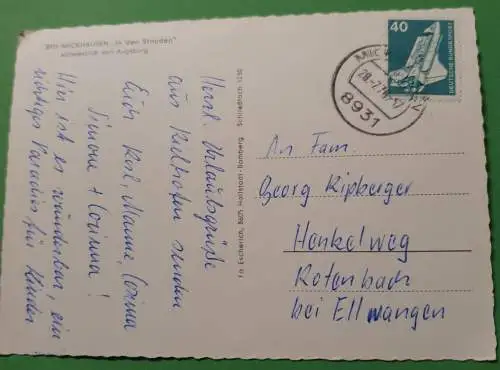 8931 MICKHAUSEN „In den Stauden"
südwestlich von Augsburg
Herzl. Urlaubsgrüße
aus senden
Euch Karl, Corinna
Simone + Corinna!
Hier ist es wunderbar, ein
richtiges Paradies für Kinder
Fa Escherich, 8605 Hallstadt-Bamberg Schließfach 1250
40
DEUTSCHE BUNDESPOST
MICK
8931
An Fam.
Georg Ripberger
Henkelweg
Rotenbach
bei Ellwangen